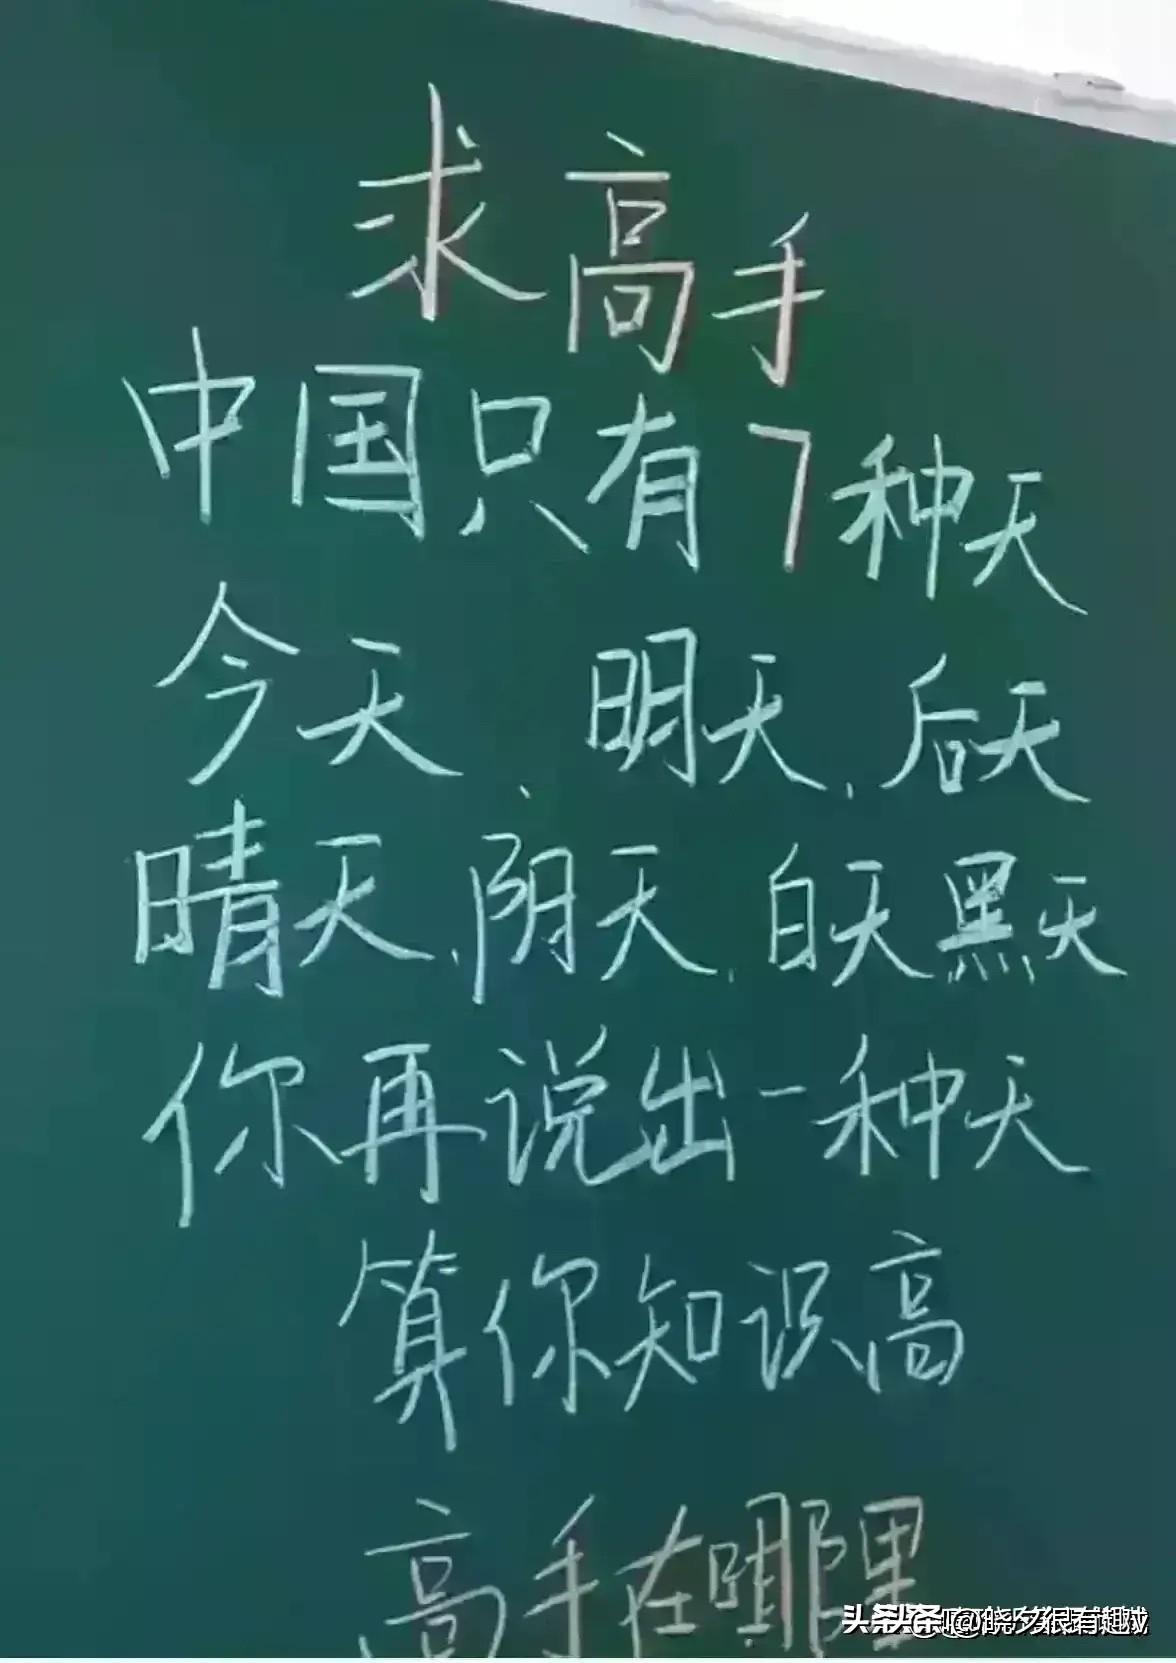 求高手
中国只有7种天
今天、明天、后天
晴天、阴天、白天黑天
你再说出一种天
算你知识高
高手在哪里
头条@晓夕很有趣